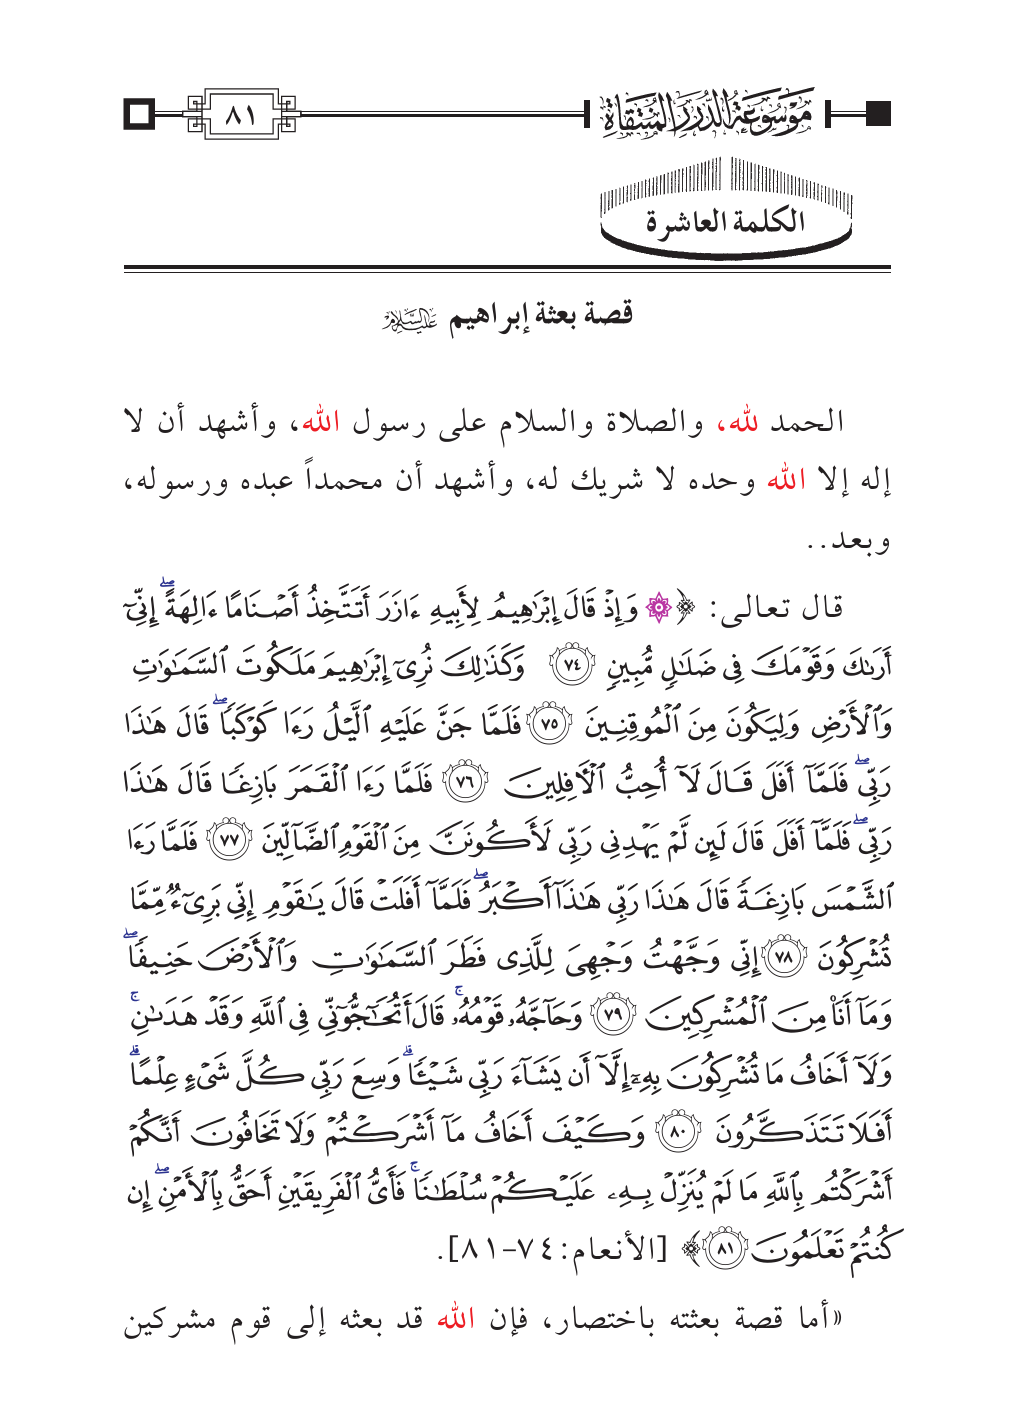 موسوعة الدرر المنتقاة
٨١
الكلمة العاشرة
قصة بعثة إبراهيم عليه السلام
الحمد لله، والصلاة والسلام على رسول الله، وأشهد أن لا
إله إلا الله وحده لا شريك له، وأشهد أن محمداً عبده ورسوله،
وبعد..
قال تعالى: ﴿۞ وَإِذْ قَالَ إِبْرَٰهِيمُ لِأَبِيهِ ءَازَرَ أَتَتَّخِذُ أَصْنَامًا ءَالِهَةً ۖ إِنِّىٓ
أَرَىٰكَ وَقَوْمَكَ فِى ضَلَٰلٍ مُّبِينٍ ٧٤ وَكَذَٰلِكَ نُرِىٓ إِبْرَٰهِيمَ مَلَكُوتَ ٱلسَّمَٰوَٰتِ
وَٱلْأَرْضِ وَلِيَكُونَ مِنَ ٱلْمُوقِنِينَ ٧٥ فَلَمَّا جَنَّ عَلَيْهِ ٱلَّيْلُ رَءَا كَوْكَبًا ۖ قَالَ هَٰذَا
رَبِّى ۖ فَلَمَّآ أَفَلَ قَالَ لَآ أُحِبُّ ٱلْءَافِلِينَ ٧٦ فَلَمَّا رَءَا ٱلْقَمَرَ بَازِغًا قَالَ هَٰذَا
رَبِّى ۖ فَلَمَّآ أَفَلَ قَالَ لَئِن لَّمْ يَهْدِنِى رَبِّى لَأَكُونَنَّ مِنَ ٱلْقَوْمِ ٱلضَّآلِّينَ ٧٧ فَلَمَّا رَءَا
ٱلشَّمْسَ بَازِغَةً قَالَ هَٰذَا رَبِّى هَٰذَآ أَكْبَرُ ۖ فَلَمَّآ أَفَلَتْ قَالَ يَٰقَوْمِ إِنِّى بَرِىٓءٌ مِّمَّا
تُشْرِكُونَ ٧٨ إِنِّى وَجَّهْتُ وَجْهِىَ لِلَّذِى فَطَرَ ٱلسَّمَٰوَٰتِ وَٱلْأَرْضَ حَنِيفًا ۖ
وَمَآ أَنَا۠ مِنَ ٱلْمُشْرِكِينَ ٧٩ وَحَآجَّهُۥ قَوْمُهُۥ ۚ قَالَ أَتُحَٰٓجُّوٓنِّى فِى ٱللَّهِ وَقَدْ هَدَىٰنِ ۚ
وَلَآ أَخَافُ مَا تُشْرِكُونَ بِهِۦٓ إِلَّآ أَن يَشَآءَ رَبِّى شَيْـًٔا ۗ وَسِعَ رَبِّى كُلَّ شَىْءٍ عِلْمًا ۗ
أَفَلَا تَتَذَكَّرُونَ ٨٠ وَكَيْفَ أَخَافُ مَآ أَشْرَكْتُمْ وَلَا تَخَافُونَ أَنَّكُمْ
أَشْرَكْتُم بِٱللَّهِ مَا لَمْ يُنَزِّلْ بِهِۦ عَلَيْكُمْ سُلْطَٰنًا ۚ فَأَىُّ ٱلْفَرِيقَيْنِ أَحَقُّ بِٱلْأَمْنِ ۖ إِن
كُنتُمْ تَعْلَمُونَ ٨١﴾ [الأنعام: ٧٤-٨١].
«أما قصة بعثته باختصار، فإن الله قد بعثه إلى قوم مشركين